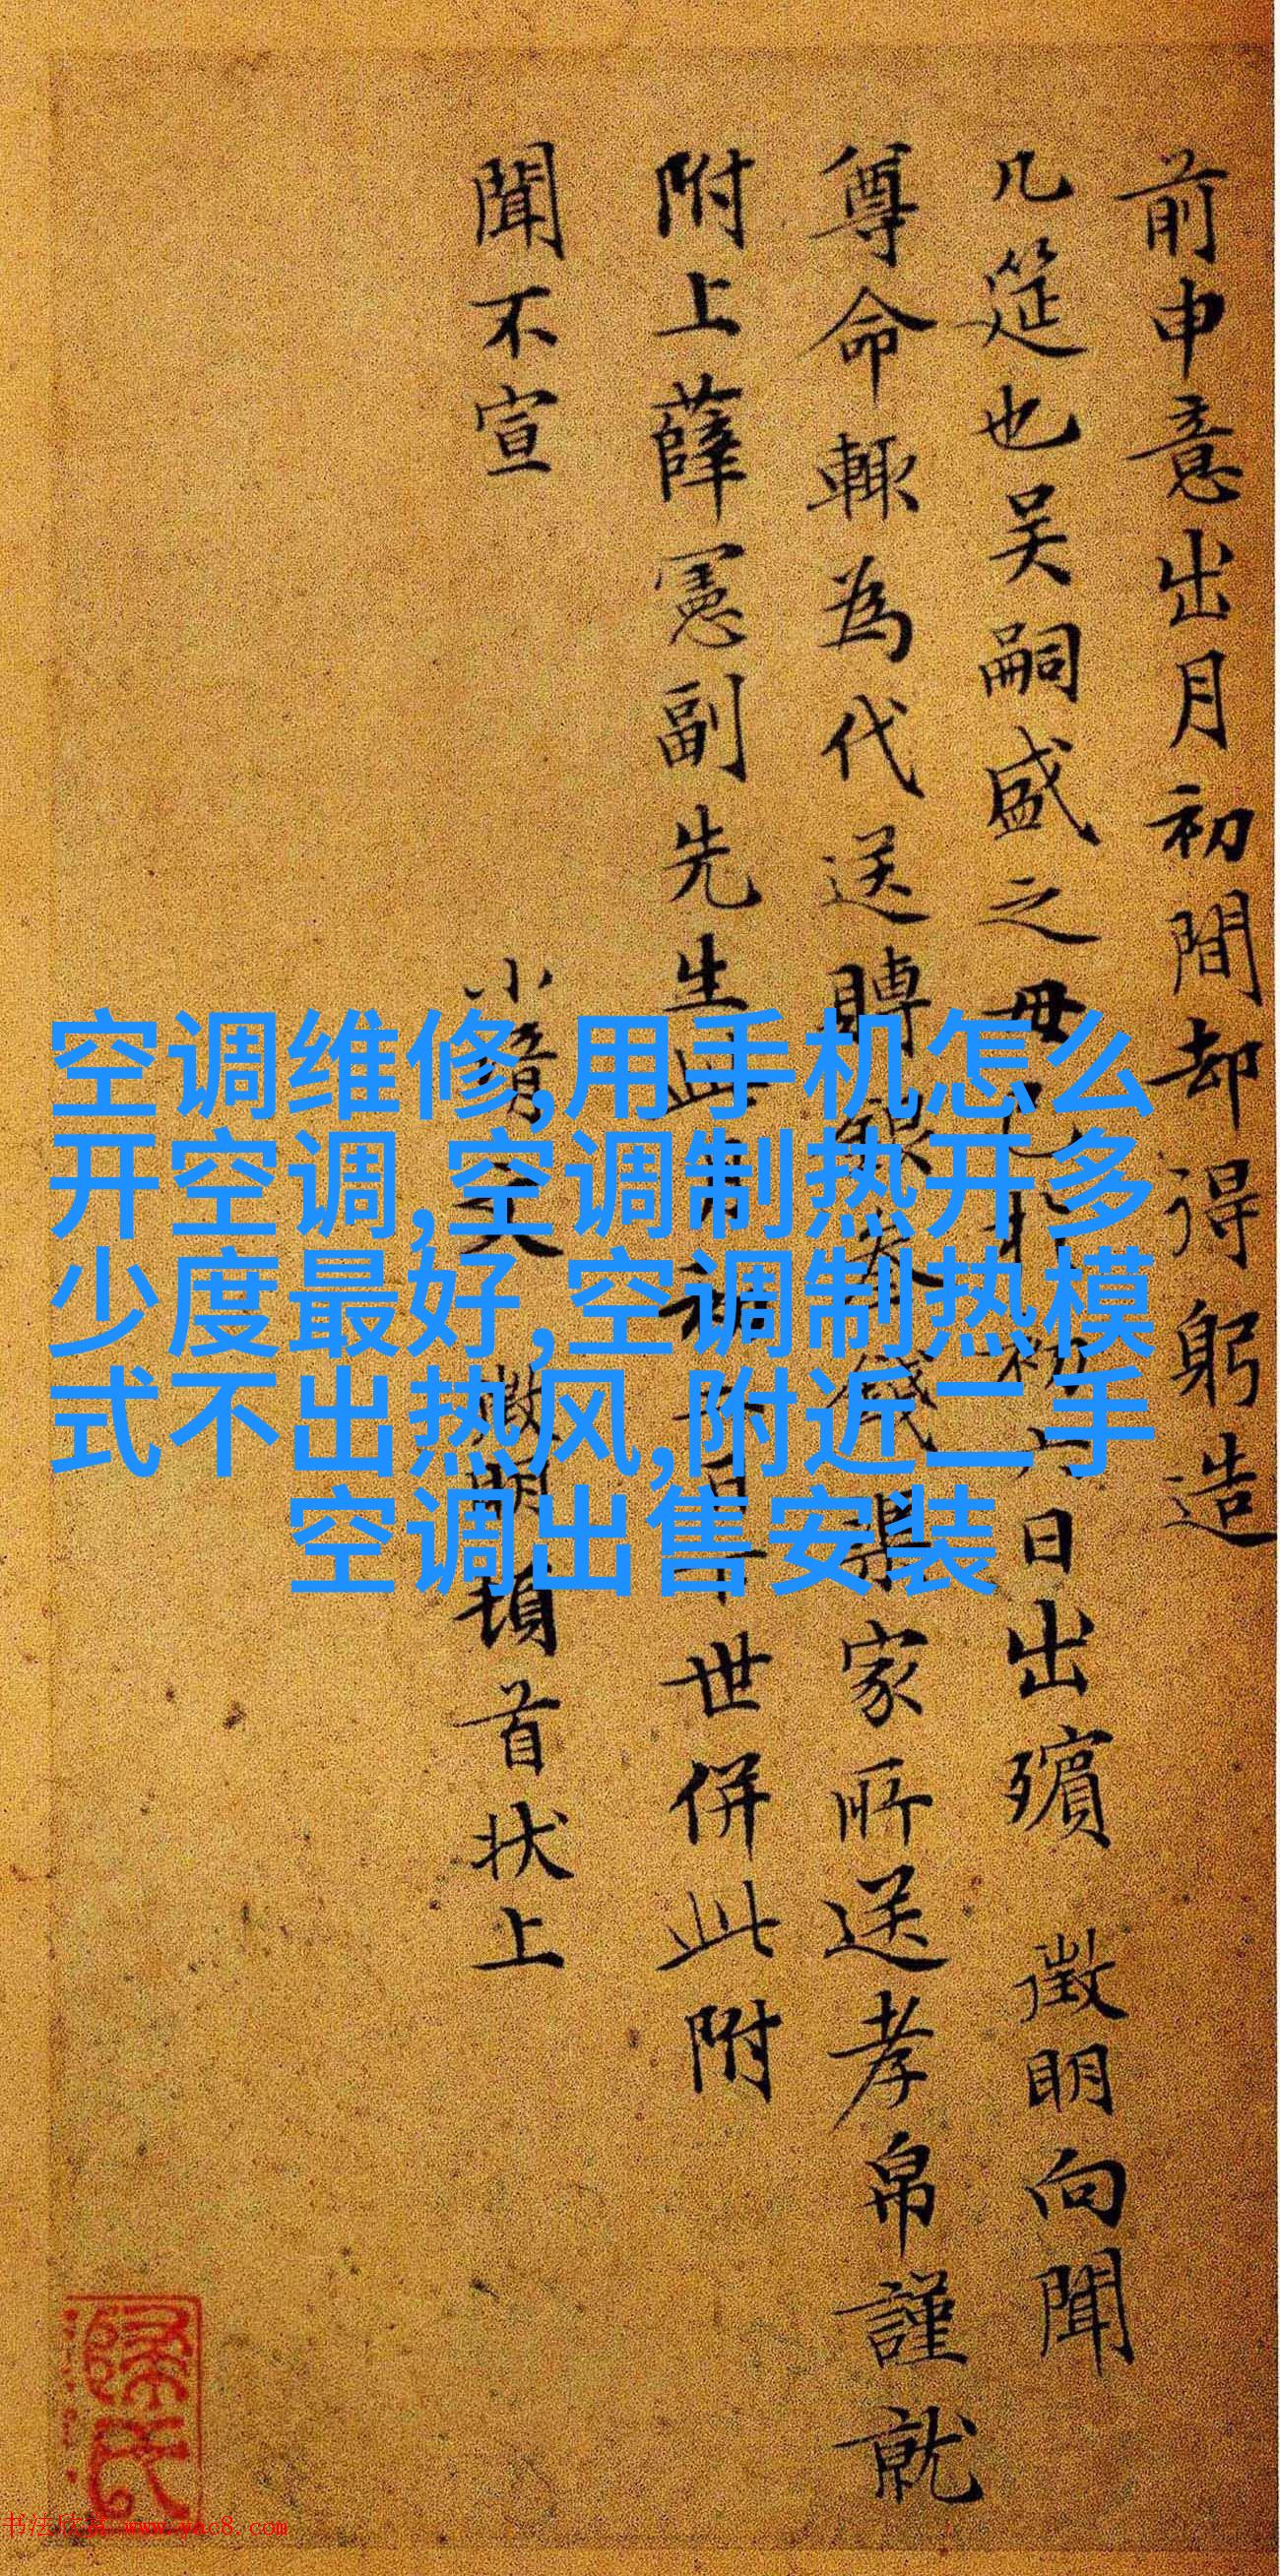 前申意出月初間却得躬造
几筵也吴嗣盛之毋日出殯 徵明向聞
尊命輒為代送聘家所送孝帛謹就
附上薛憲副先生此世併此附
聞不宣
小頓首状上
空调维修,用手机怎么
开空调,空调制热开多
少度最好,空调制热模
式不出热风,附近二手
空调出售安装
书法欣赏 www.yac8.com